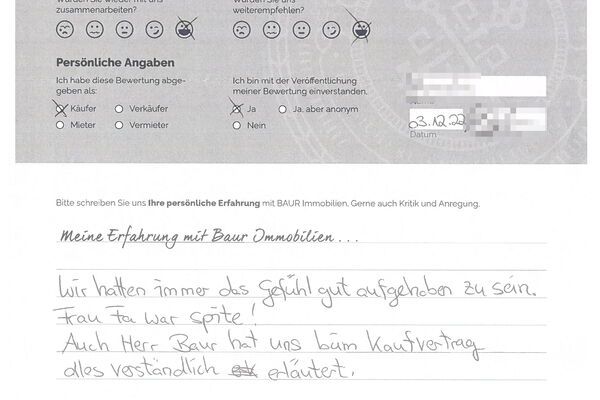 Würden Sie wieder mit uns
zusammenarbeiten?
Würden Sie uns
weiterempfehlen?
Persönliche Angaben
Ich habe diese Bewertung abge-
geben als:
Käufer
Verkäufer
Mieter
Vermieter
Ich bin mit der Veröffentlichung
meiner Bewertung einverstanden.
Ja
Ja, aber anonym
Nein
Name
03.12.22,
Datum
Bitte schreiben Sie uns Ihre persönliche Erfahrung mit BAUR Immobilien. Gerne auch Kritik und Anregung.
Meine Erfahrung mit Baur Immobilien...
Wir hatten immer das Gefühl gut aufgehoben zu sein.
Frau Fa war spitze!
Auch Herr Baur hat uns beim Kaufvertrag
alles verständlich erläutert.